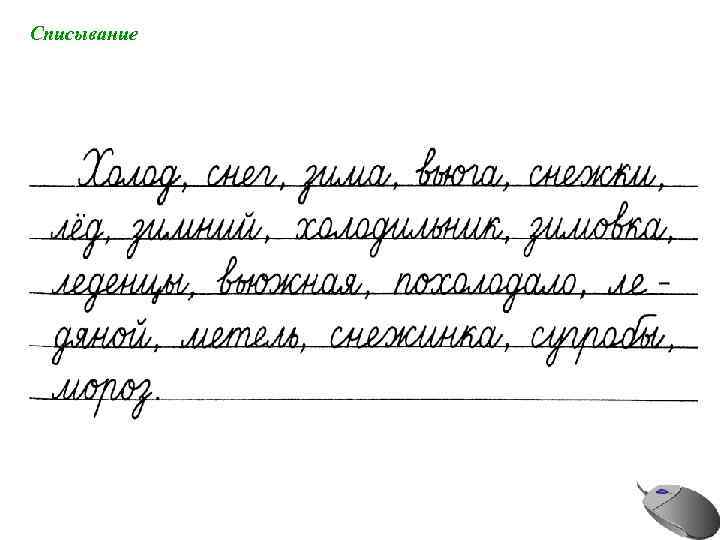 Списывание
Холод, снег, зима, вьюга, снежки,
лёд, зимний, холодильник, зимовка,
леденцы, вьюжная, похолодало, ле-
дяной, метель, снежинка, сугробы,
мороз.